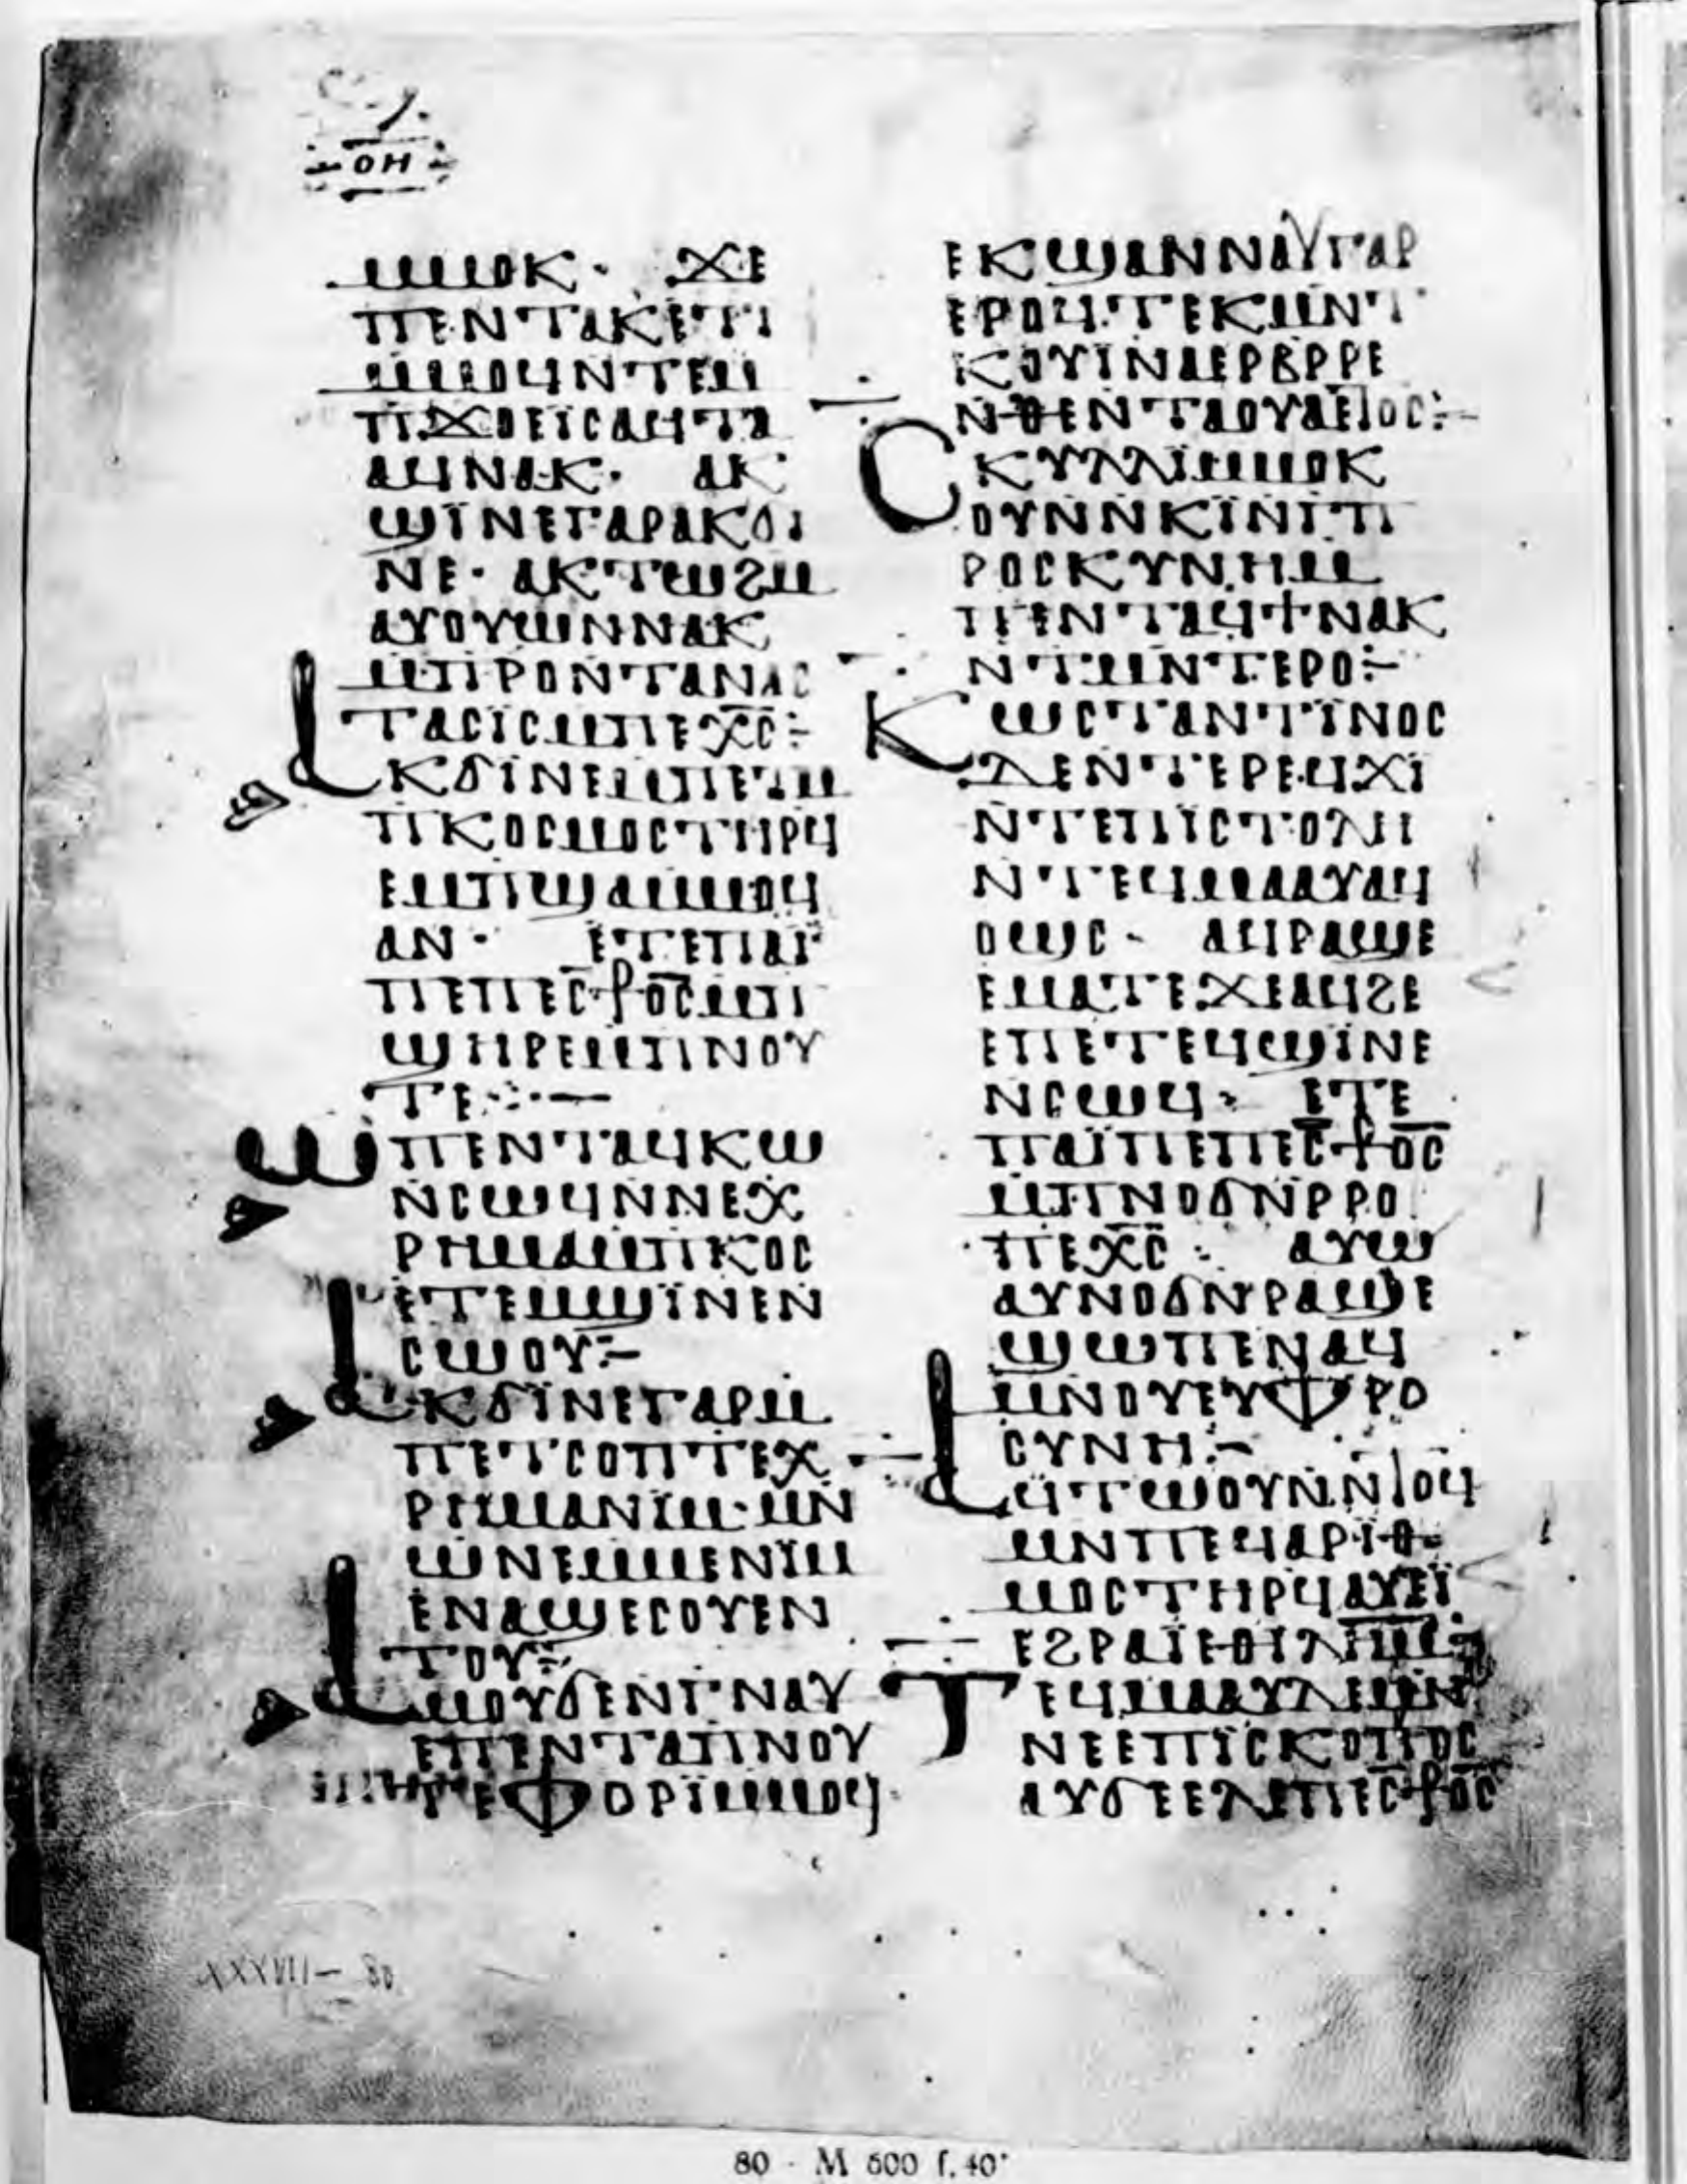 ⲟⲏ
ⲙⲙⲟⲕ · ϫⲉ
ⲡⲉⲛⲧⲁⲕⲉⲧⲓ
ⲙⲙⲟϥⲛⲧⲉⲙ
ⲡϫⲟⲉⲓⲥⲁϥⲧⲁ
ⲁϥⲛⲁⲕ · ⲁⲕ
ϣⲓⲛⲉⲅⲁⲣⲁⲕϭⲓ
ⲛⲉ · ⲁⲕⲧⲱϩⲙ
ⲁⲩⲟⲩⲱⲛⲛⲁⲕ
ⲙⲡⲣⲟⲛⲧⲁⲛⲁⲥ
ⲧⲁⲥⲓⲥⲙⲡⲉⲭ̅ⲥ̅ :-
ⲁⲕϭⲓⲛⲉⲙⲡⲉⲧⲙ
ⲡⲕⲟⲥⲙⲟⲥⲧⲏⲣϥ
ⲉⲙⲡϣⲁⲙⲙⲟϥ
ⲁⲛ · ⲉⲧⲉⲡⲁⲓ̈
ⲡⲉⲡⲉⲥ̅⳨ⲟ̅ⲥ̅ⲙⲡ
ϣⲏⲣⲉⲙⲡⲛⲟⲩ
ⲧⲉ :·—
ⲱⲡⲉⲛⲧⲁϥⲕⲱ
ⲛⲥⲱϥⲛⲛⲉⲭ
ⲣⲏⲙⲁⲙⲡⲕⲟⲥ
ⲉⲧⲉⲙϣⲓ̈ⲛⲉⲛ
ⲥⲱⲟⲩ :-
ⲁⲕϭⲓ̈ⲛⲉⲅⲁⲣⲙ
ⲡⲉⲧⲥⲟⲧⲡⲉⲭ
ⲣⲏⲙⲁⲛⲓⲙ · ⲙⲛ
ⲱⲛⲉⲙⲙⲉⲛⲓⲙ
ⲉⲛⲁϣⲉⲥⲟⲩⲉⲛ
ⲧⲟⲩ :-
ⲁⲙⲟⲩϭⲉⲛⲅⲛⲁⲩ
ⲉⲡⲉⲛⲧⲁⲡⲛⲟⲩ
ⲧⲉⲫⲟⲣⲓ̈ⲙⲙⲟϥ ·
ⲉⲕϣⲁⲛⲛⲁⲩⲅⲁⲣ
ⲉⲣⲟϥ · ⲧⲉⲕⲙⲛⲧ
ⲕⲟⲩⲓ̈ⲛⲁⲉⲣⲃⲣⲣⲉ
ⲛⲑⲉⲛⲧⲁⲟⲩⲁⲉⲧⲟⲥ :-
ⲥⲕⲩⲗⲗⲓ̈ⲙⲙⲟⲕ
ⲟⲩⲛⲛⲕⲓ̈ⲛⲅⲡ
ⲣⲟⲥⲕⲩⲛⲏⲙ
ⲡⲉⲛⲧⲁϥϯⲛⲁⲕ
ⲛⲧⲙⲛⲧⲉⲣⲟ :-
ⲕⲱⲥⲧⲁⲛⲧⲓ̈ⲛⲟⲥ
ⲇⲉⲛⲧⲉⲣⲉϥϫⲓ
ⲛⲧⲉⲡⲓ̈ⲥⲧⲟⲗⲏ
ⲛⲧⲉϥⲙⲁⲁⲩⲁϥ
ⲟϣⲥ · ⲁϥⲣⲁϣⲉ
ⲉⲙⲁⲧⲉϫⲉⲁϥϩⲉ
ⲉⲡⲉⲧⲉϥϣⲓ̈ⲛⲉ
ⲛⲥⲱϥ · ⲉⲧⲉ
ⲡⲁⲓ̈ⲡⲉⲡⲉⲥ̅⳨ⲟ̅ⲥ̅
ⲙⲡⲛⲟϭⲛⲣⲣⲟ
ⲡⲉⲭ̅ⲥ̅ : ⲁⲩⲱ
ⲁⲩⲛⲟϭⲛⲣⲁϣⲉ
ϣⲱⲡⲉⲛⲁϥ
ⲙⲛⲟⲩⲉⲩⲫⲣⲟ
ⲥⲩⲛⲏ :-
ⲁϥⲧⲱⲟⲩⲛⲛϭⲓϥ
ⲙⲛⲡⲉϥⲁⲣⲓ̈ⲑ
ⲙⲟⲥⲧⲏⲣϥⲁⲩⲉⲓ̈
ⲉϩⲣⲁⲓ̈ⲉⲑⲓⲗⲏⲙ
ⲧⲉϥⲙⲁⲁⲩⲇⲉⲙⲛ
ⲛⲉⲉⲡⲓ̈ⲥⲕⲟⲡⲟⲥ
ⲁⲩϭⲉⲉⲗⲡⲉⲥ̅⳨ⲟ̅ⲥ̅
80 - M 600 f. 40ᵛ